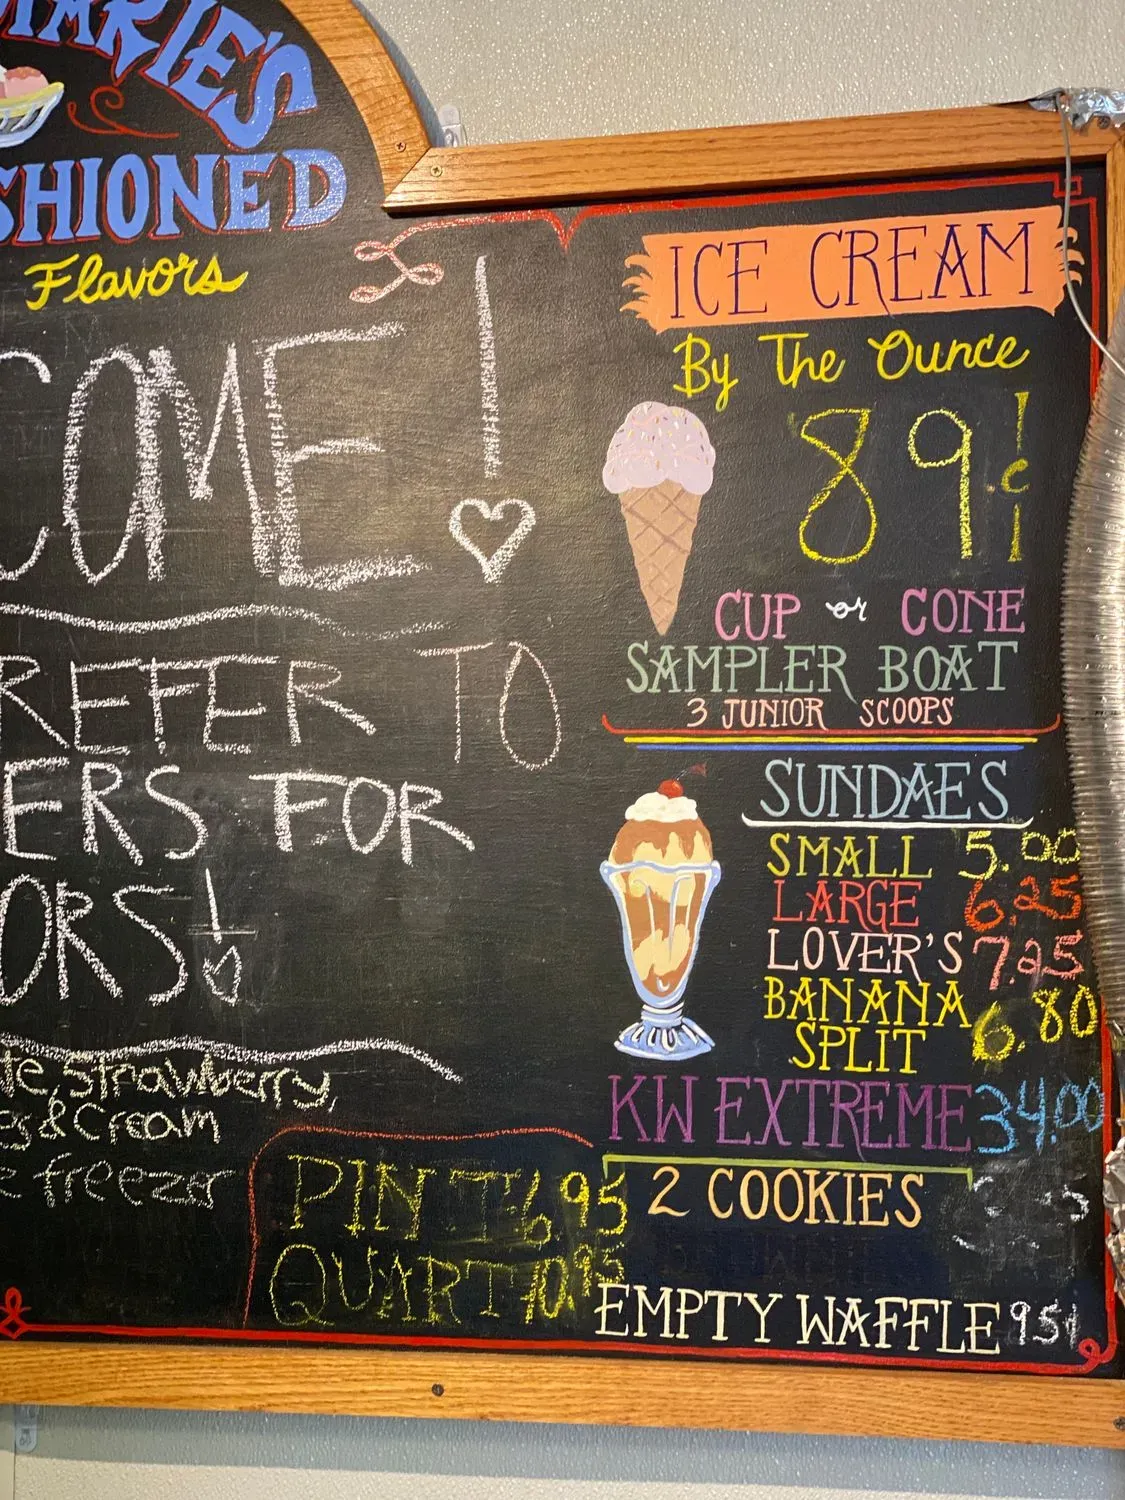 MARIE'S
SHIONED
Flavors
COME!
REFER TO
ERS FOR
ORS!
te, Strawberry,
es & Cream
e freezer
PINT 6.95
QUART 10.95
ICE CREAM
By The Ounce
89¢
CUP or CONE
SAMPLER BOAT
3 JUNIOR SCOOPS
SUNDAES
SMALL 5.00
LARGE 6.25
LOVER'S 7.25
BANANA
SPLIT 6.80
KW EXTREME 34.00
2 COOKIES
EMPTY WAFFLE 95¢